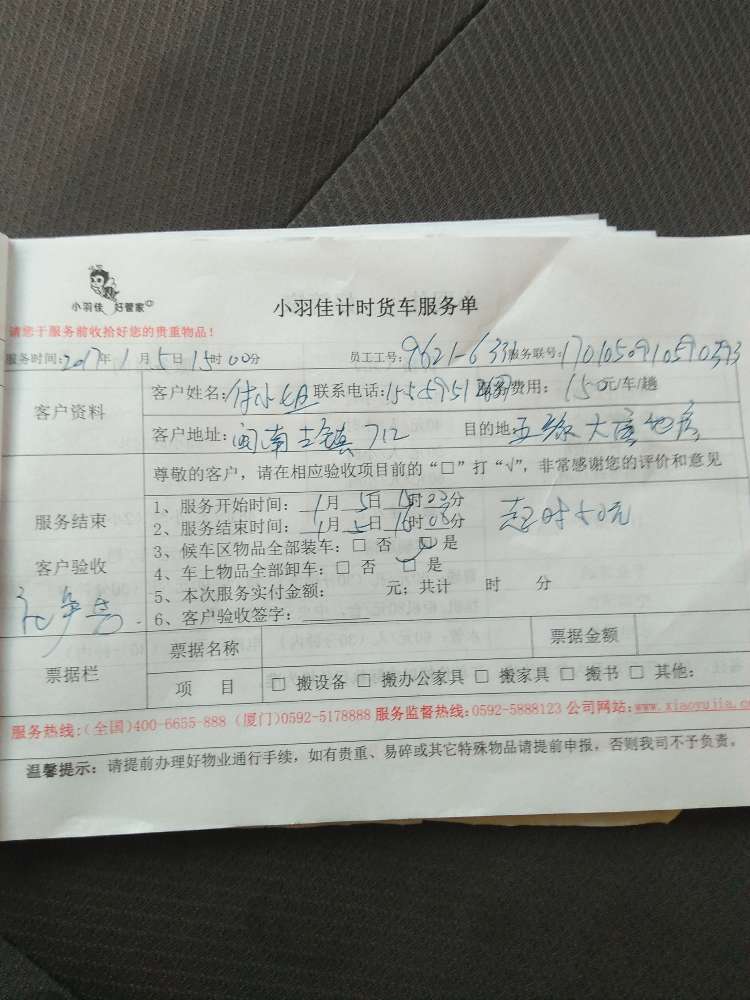 小羽佳 好管家
小羽佳计时货车服务单
请您于服务前收拾好您的贵重物品！
服务时间：2017年1月5日15时00分 员工工号：9621-6331 服务联号：1701050910590393
客户资料
客户姓名：付小姐 联系电话： 服务费用：150元/车/趟
客户地址：闽南古镇712 目的地：五缘大厦
尊敬的客户，请在相应验收项目前的“□”打“√”，非常感谢您的评价和意见
服务结束
客户验收
1、服务开始时间：1月5日15时03分
2、服务结束时间：1月5日16时08分
超时50元
3、候车区物品全部装车：□ 否 □ 是
4、车上物品全部卸车：□ 否 □ 是
5、本次服务实付金额： 元；共计 时 分
6、客户验收签字：
票据栏
票据名称 票据金额
项 目 □ 搬设备 □ 搬办公家具 □ 搬家具 □ 搬书 □ 其他：
服务热线：(全国)400-6655-888 (厦门)0592-5178888 服务监督热线：0592-5888123 公司网站：www.xiaoyujia.co
温馨提示：请提前办理好物业通行手续，如有贵重、易碎或其它特殊物品请提前申报，否则我司不予负责。